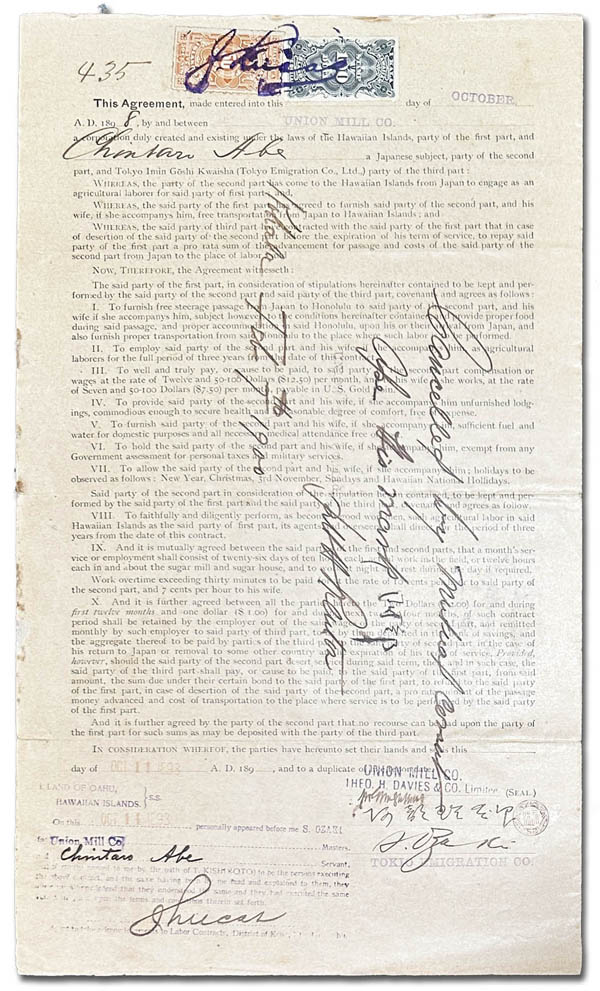 435
J Lucas
This Agreement, made entered into this day of OCTOBER,
A. D. 1898, by and between UNION MILL CO.
a corporation duly created and existing under the laws of the Hawaiian Islands, party of the first part, and
Chintaro Abe a Japanese subject, party of the second
part, and Tokyo Imin Gōshi Kwaisha (Tokyo Emigration Co., Ltd.,) party of the third part:
WHEREAS, the party of the second part has come to the Hawaiian Islands from Japan to engage as an
agricultural laborer for said party of first part; and,
WHEREAS, the party of the first part has agreed to furnish said party of the second part, and his
wife, if she accompanys him, free transportation from Japan to Hawaiian Islands; and
WHEREAS, the party of third part has contracted with the said party of the first part that in case
of desertion of the said party of the second part before the expiration of his term of service, to repay said
party of the first part a pro rata sum of the advancement for passage and costs of the said party of the
second part from Japan to the place of labor.
NOW, THEREFORE, the Agreement witnesseth:
The said party of the first part, in consideration of stipulations hereinafter contained to be kept and per-
formed by the said party of the second and said party of the third part, covenants and agrees as follows:
I. To furnish free steerage passage from Japan to Honolulu to said party of the second part, and his
wife if she accompanys him, subject however to the conditions hereinafter contained, to provide proper food
during said passage, and proper accommodation in said Honolulu, upon his or their arrival from Japan, and
also furnish proper transportation from Honolulu to the place where such labor is to be performed.
II. To employ said party of the second part and his wife, if she accompany him, as agricultural
laborers for the full period of three years from the date of this
III. To well and truly pay, or cause to be paid, to said party of the second part compensation or
wages at the rate of Twelve and 50-100 Dollars ($12.50) per month, and his wife if she works, at the rate
of Seven and 50-100 Dollars ($7.50) per month payable in U. S. Gold
IV. To provide said party of the second part and his wife, if she accompanys him unfurnished lodg-
ings, commodious enough to secure health and a reasonable degree of comfort, free of expense.
V. To furnish said party of the second part and his wife, if she accompanys sufficient fuel and
water for domestic purposes and all necessary medical attendance free of
VI. To hold the said party of the second part and his wife, if she accompany him, exempt from any
Government assessment for personal taxes and military services.
VII. To allow the said party of the second part and his wife, if she accompany him; holidays to be
observed as follows: New Year, Christmas, 3rd November, Sundays and Hawaiian National Hollidays.
Said party of the second part in consideration of the stipulation herein contained, to be kept and per-
formed by the said party of the first part and the said party of the third part, covenants and agrees as follows:
VIII. To faithfully and diligently perform, as becomes good workmen, such agricultural labor in said
Hawaiian Islands as the said party of first part, its agents and overseers shall direct for the period of three
years from the date of this contract.
IX. And it is mutually agreed between the said parties of the first and second parts, that a month's ser-
vice or employment shall consist of twenty-six days of ten hours each, actual work in the field, or twelve hours
each in and about the sugar mill and sugar house, and to work during the day if required.
Work overtime exceeding thirty minutes to be paid at the rate of 10 cents per hour to said party of
the second part, and 7 cents per hour to his wife.
X. And it is further agreed between all the parties Dollars for and during
first twelve months and one dollar ($1.00) for and during the next months, of such contract
period shall be retained by the employer out of the said wages of said party of second part, and remitted
monthly by such employer to said party of third part, to be deposited in the bank of savings, and
the aggregate thereof to be paid by parties of the third part to the party of second part in the case of
his return to Japan or removal to some other country at the termination of his term of service, Provided,
however, should the said party of the second part desert service during said term, then and in such case, the
said party of the third part shall pay, or cause to be paid, to the said party of the first part, from said
amount, the sum due under their certain bond to the said party of the first part, to refund to the said party
of the first part, in case of desertion of the said party of the second part, a pro rata part of the passage
money advanced and cost of transportation to the place where service is to be performed by the said party
of the first part.
And it is further agreed by the party of the second part that no recourse can be had upon the party of
the first part for such sums as may be deposited with the party of the third part.
IN CONSIDERATION WHEREOF, the parties have hereunto set their hands and seals this
day of OCT 11 A. D. 189 , and to a duplicate of
Cancelled by mutual consent
Kohala Feby 7th 1900
UNION MILL CO.
THEO. H. DAVIES & CO. Limited (SEAL)
S. Ozaki
TOKIO EMIGRATION CO.
ISLAND OF OAHU,
HAWAIIAN ISLANDS. } S.S.
On this OCT 11 personally appeared before me S. OZAKI
for Union Mill Co Masters,
Chintaro Abe Servant,
to me by the oath of T. KISHIMOTO) to be the persons executing
the contract, and the same having been by me read and explained to them, they
that they understand the same and they had executed the same
upon the terms and conditions therein set forth.
J Lucas
to Labor Contracts, District of